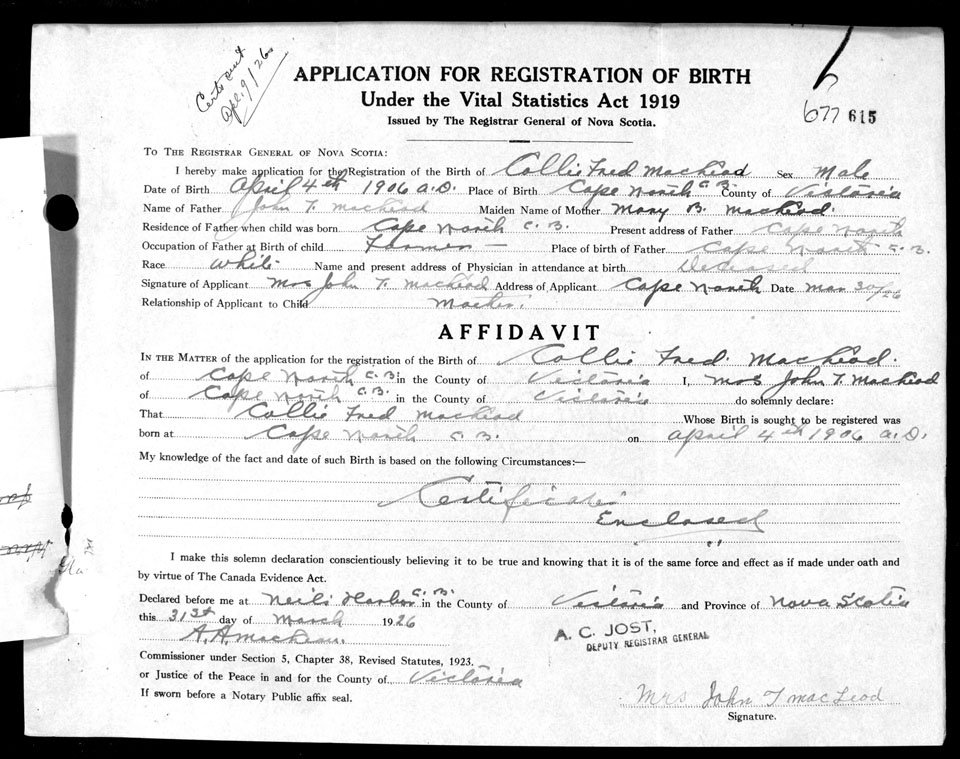 Certs sent
Apl. 9/26
APPLICATION FOR REGISTRATION OF BIRTH
Under the Vital Statistics Act 1919
Issued by The Registrar General of Nova Scotia.
677 615
TO THE REGISTRAR GENERAL OF NOVA SCOTIA:
I hereby make application for the Registration of the Birth of Collie Fred MacLeod Sex Male
Date of Birth April 4th 1906 A.D. Place of Birth Cape North C.B. County of Victoria
Name of Father John T. MacLeod Maiden Name of Mother Mary B. MacLeod.
Residence of Father when child was born Cape North C.B. Present address of Father Cape North
Occupation of Father at Birth of child Farmer Place of birth of Father Cape North C.B.
Race White Name and present address of Physician in attendance at birth Deceased
Signature of Applicant Mrs John T. MacLeod Address of Applicant Cape North Date Mar 30/26
Relationship of Applicant to Child Mother.
AFFIDAVIT
IN THE MATTER of the application for the registration of the Birth of Collie Fred. MacLeod.
of Cape North C.B. in the County of Victoria I, Mrs John T. MacLeod
of Cape North C.B. in the County of Victoria do solemnly declare:
That Collie Fred MacLeod Whose Birth is sought to be registered was
born at Cape North C.B. on April 4th 1906 A.D.
My knowledge of the fact and date of such Birth is based on the following Circumstances:—
Certificate
Enclosed
I make this solemn declaration conscientiously believing it to be true and knowing that it is of the same force and effect as if made under oath and
by virtue of The Canada Evidence Act.
Declared before me at Neils Harbor C.B. in the County of Victoria and Province of Nova Scotia
this 31st day of March 1926
A. C. JOST,
DEPUTY REGISTRAR GENERAL
A. A. MacLean.
Commissioner under Section 5, Chapter 38, Revised Statutes, 1923.
or Justice of the Peace in and for the County of Victoria
If sworn before a Notary Public affix seal.
Mrs John T MacLeod
Signature.